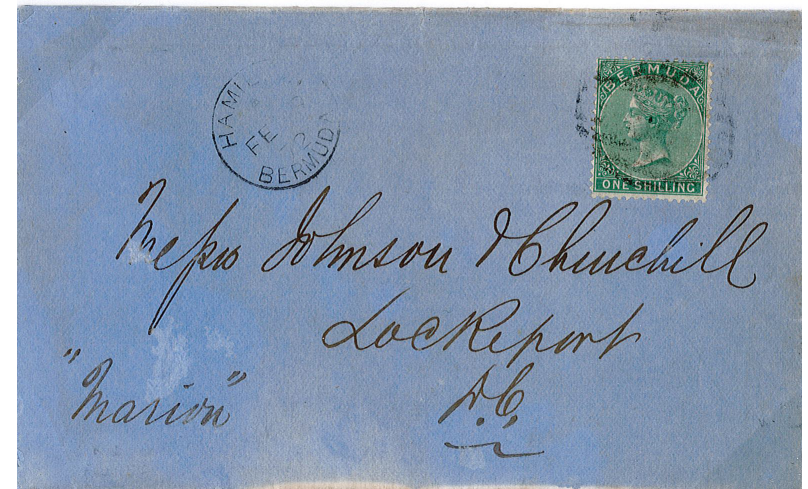 HAMI
FE
2
BERMUD
BERMUDA
ONE SHILLING
Messrs Johnson & Churchill
Lockeport
"Marion"